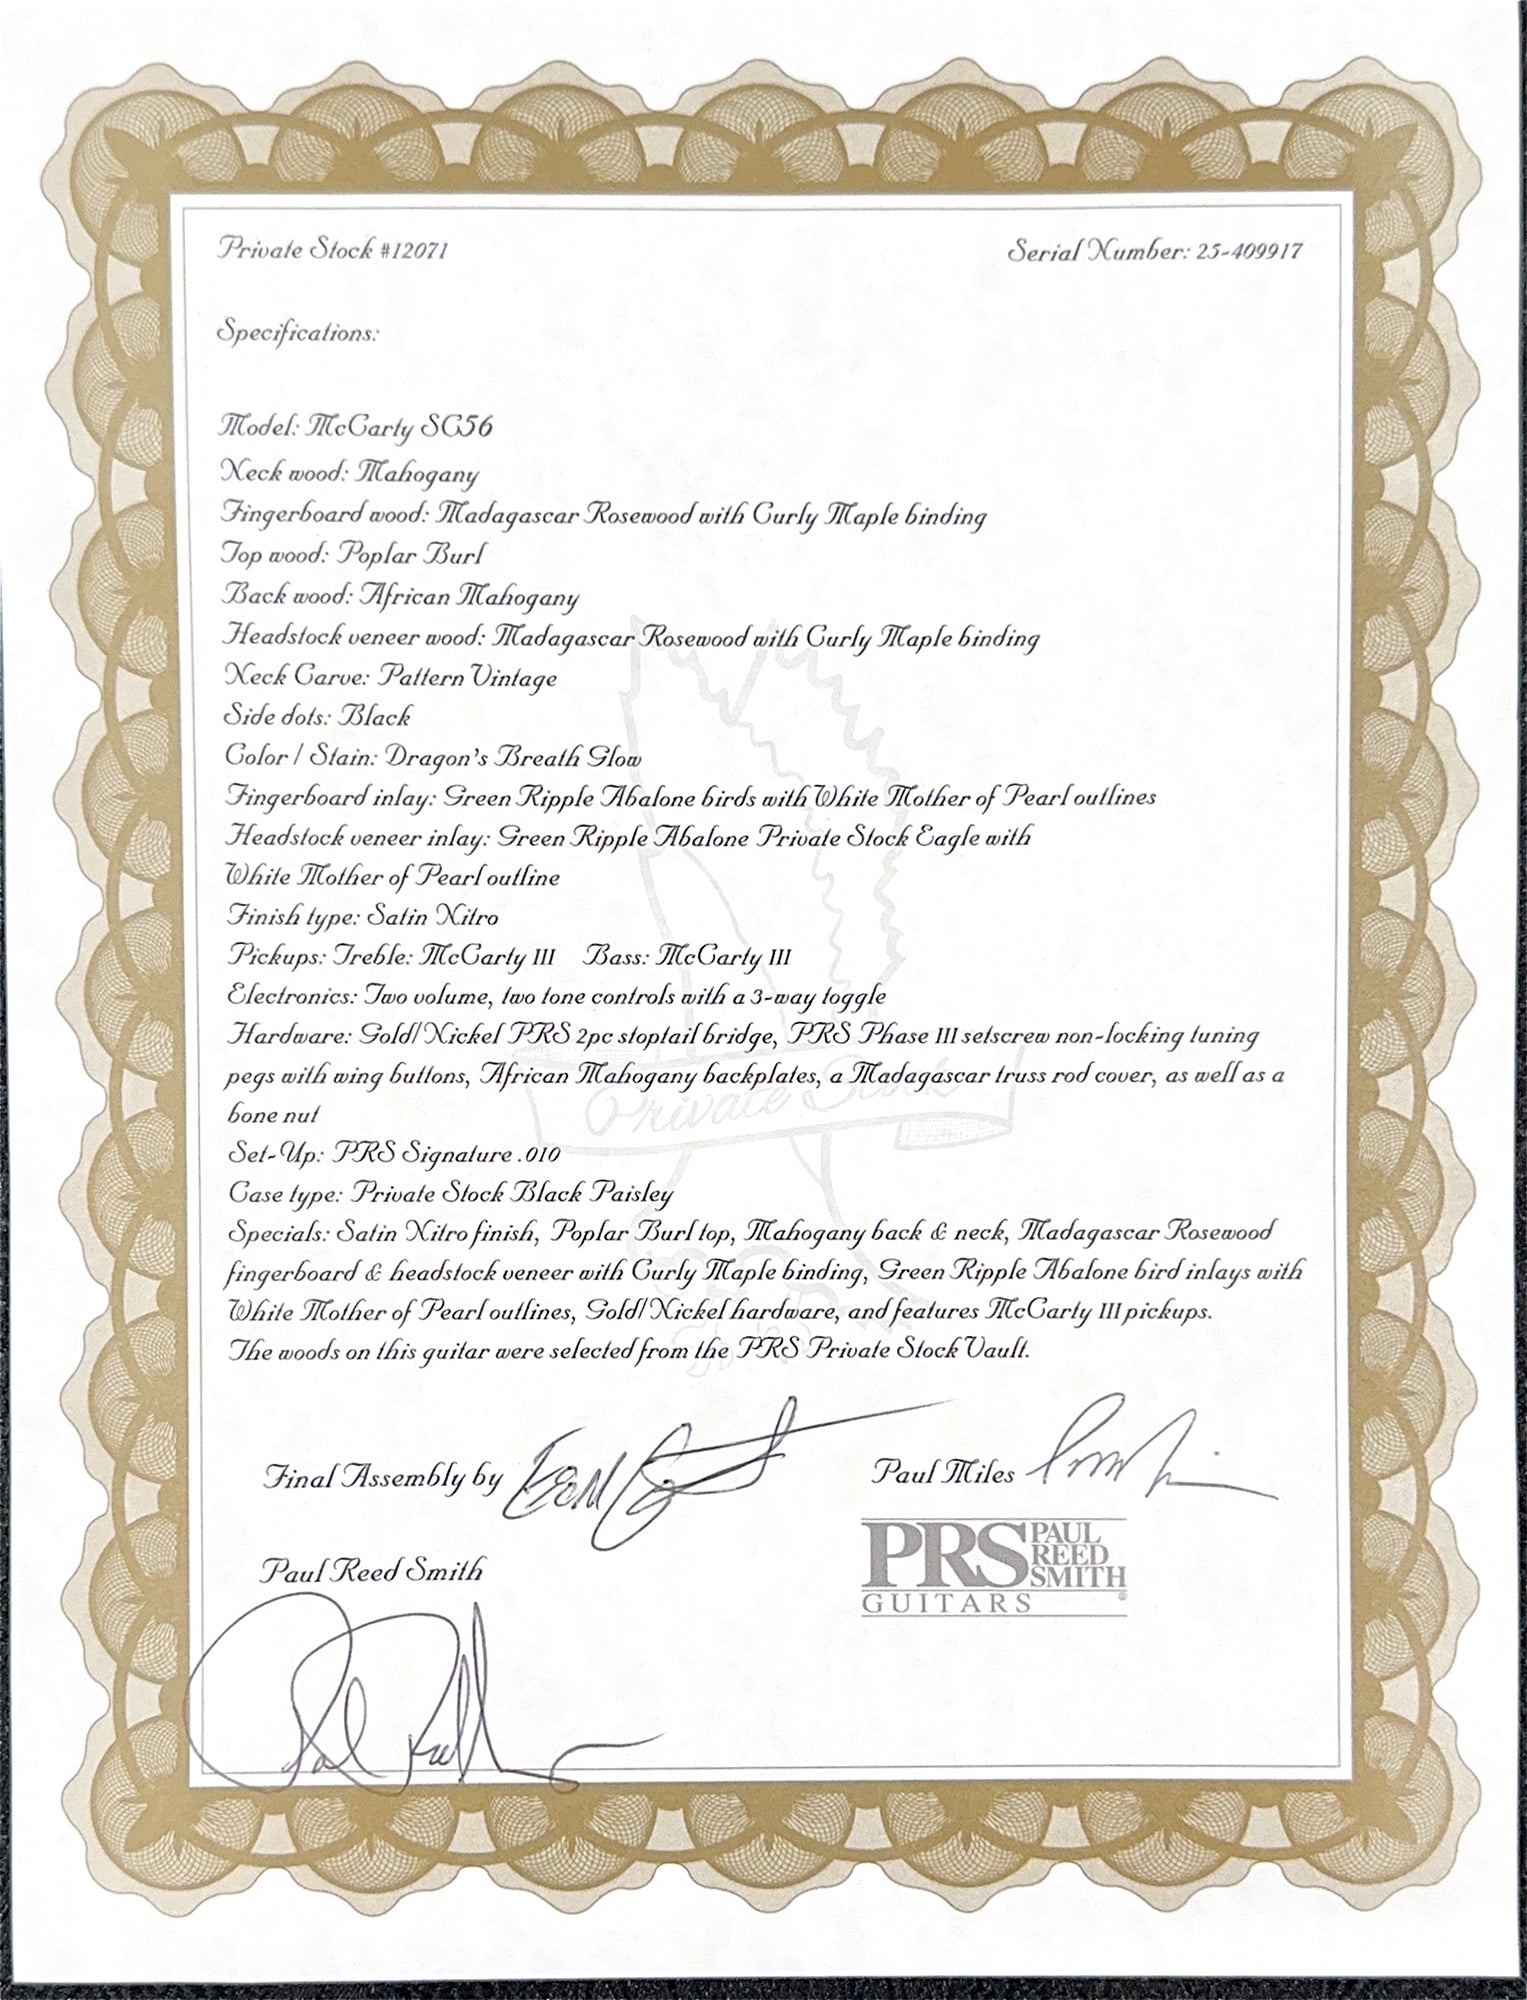 Private Stock #12071
Serial Number: 25-409917
Specifications:
Model: McCarty SC56
Neck wood: Mahogany
Fingerboard wood: Madagascar Rosewood with Curly Maple binding
Top wood: Poplar Burl
Back wood: African Mahogany
Headstock veneer wood: Madagascar Rosewood with Curly Maple binding
Neck Carve: Pattern Vintage
Side dots: Black
Color / Stain: Dragon's Breath Glow
Fingerboard inlay: Green Ripple Abalone birds with White Mother of Pearl outlines
Headstock veneer inlay: Green Ripple Abalone Private Stock Eagle with
White Mother of Pearl outline
Finish type: Satin Nitro
Pickups: Treble: McCarty III Bass: McCarty III
Electronics: Two volume, two tone controls with a 3-way toggle
Hardware: Gold/Nickel PRS 2pc stoptail bridge, PRS Phase III setscrew non-locking tuning
pegs with wing buttons, African Mahogany backplates, a Madagascar truss rod cover, as well as a
bone nut
Private Stock
Set-Up: PRS Signature .010
Case type: Private Stock Black Paisley
Specials: Satin Nitro finish, Poplar Burl top, Mahogany back & neck, Madagascar Rosewood
fingerboard & headstock veneer with Curly Maple binding, Green Ripple Abalone bird inlays with
White Mother of Pearl outlines, Gold/Nickel hardware, and features McCarty III pickups.
The woods on this guitar were selected from the PRS Private Stock Vault.
Final Assembly by
Paul Miles
Paul Reed Smith
PRS PAUL
REED
SMITH
GUITARS ®